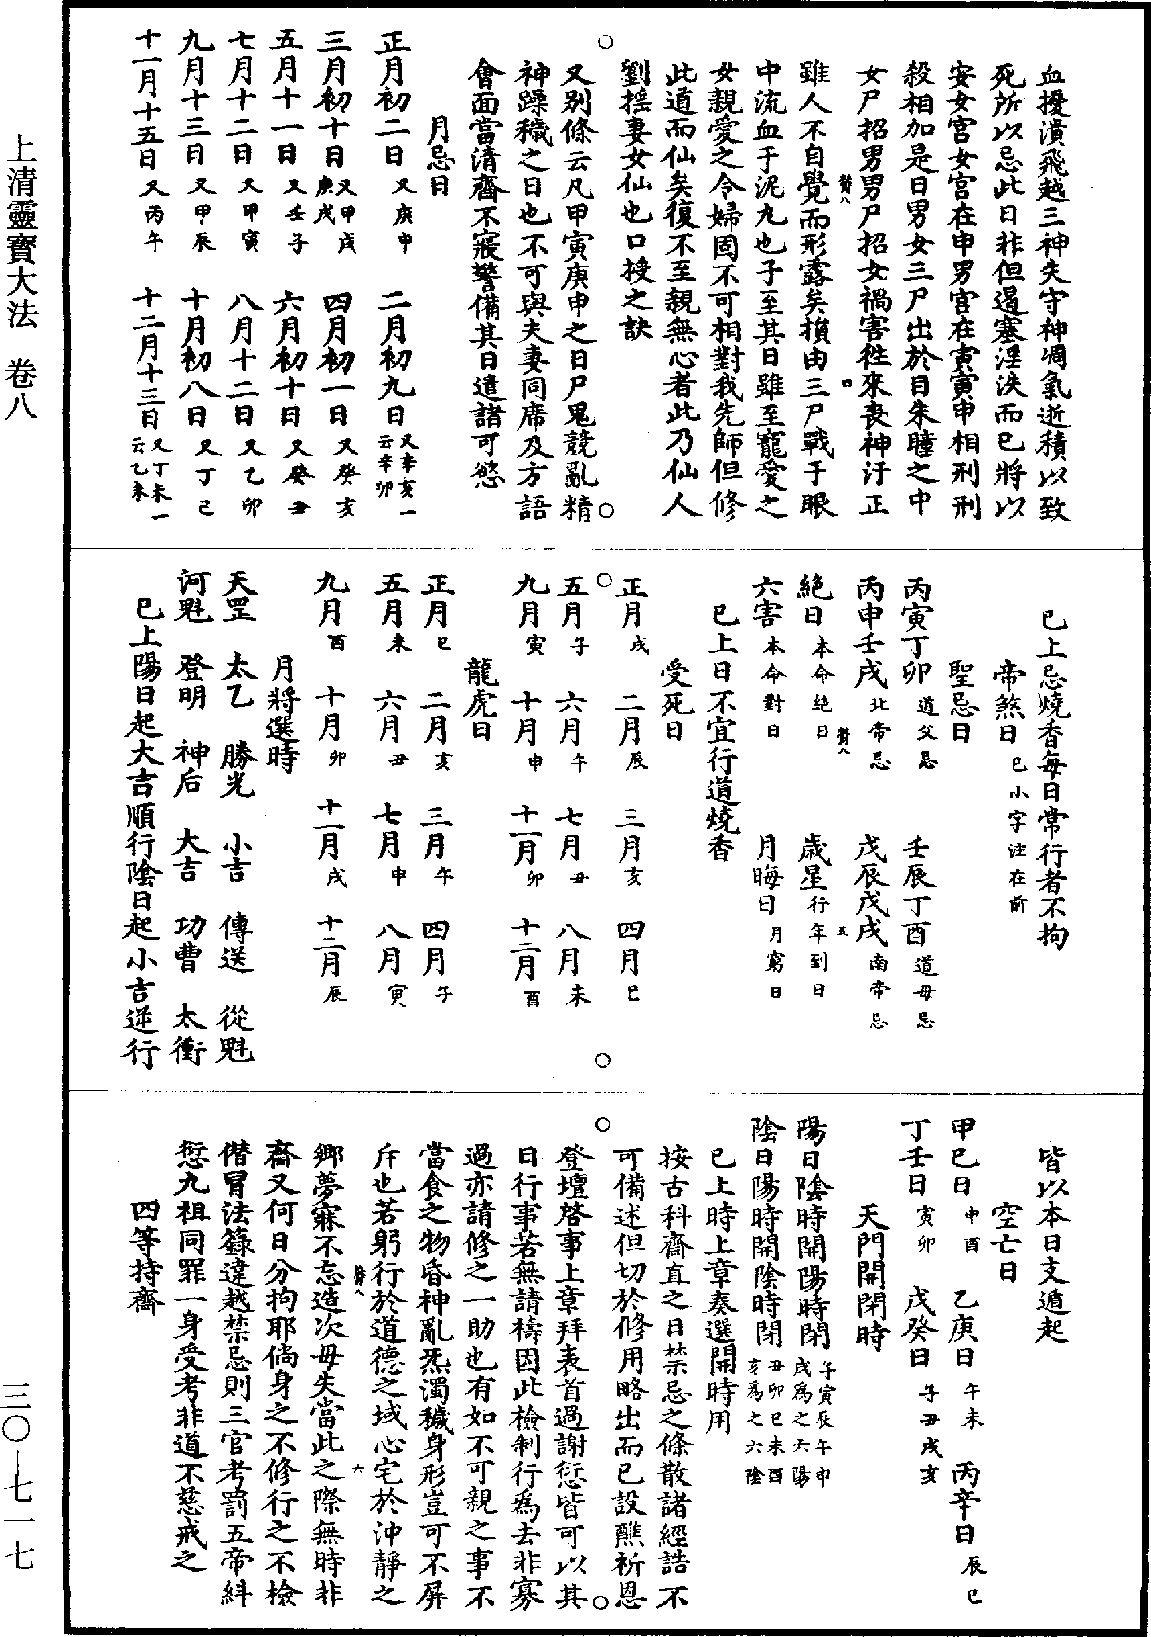 上清靈寶大法 卷八
三〇—七一七
血擾潰飛越三神失守神凋氣逝積以致
死所以忌此日非但遏塞淫泆而已將以
安女宮女宮在申男宮在寅寅申相刑刑
殺相加是日男女三尸出於目朱瞳之中
女尸招男男尸招女禍害徃來喪神汙正
贊八
四
雖人不自覺而形露矣損由三尸戰于眼
中流血于泥丸也子至其日雖至寵愛之
女親愛之令婦固不可相對我先師但修
此道而仙矣復不至親無心者此乃仙人
劉揺妻女仙也口授之訣
又别條云凡甲寅庚申之日尸鬼競亂精
神躁穢之日也不可與夫妻同席及方語
會面當清齋不寢警備其日遣諸可慾
月忌日
正月初二日又庚申 二月初九日又辛亥一云辛卯
三月初十日又甲戌庚戌 四月初一日又癸亥
五月十一日又壬子 六月初十日又癸丑
七月十二日又甲寅 八月十二日又乙卯
九月十三日又甲辰 十月初八日又丁己
十一月十五日又丙午 十二月十三日又丁未一云乙未
已上忌燒香每日常行者不拘
帝煞日已小字注在前
聖忌日
丙寅丁卯道父忌 壬辰丁酉道母忌
丙申壬戌北帝忌 戊辰戊戌南帝忌
贊八
五
絕日本命絕日 歲星行年到日
六害本命對日 月晦日月窮日
已上日不宜行道燒香
受死日
正月戌 二月辰 三月亥 四月巳
五月子 六月午 七月丑 八月未
九月寅 十月申 十一月卯 十二月酉
龍虎日
正月巳 二月亥 三月午 四月子
五月未 六月丑 七月申 八月寅
九月酉 十月卯 十一月戌 十二月辰
月將選時
天罡 太乙 勝光 小吉 傳送 從魁
河魁 登明 神后 大吉 功曹 太衝
已上陽日起大吉順行陰日起小吉逆行
皆以本日支遁起
空亡日
甲己日申酉 乙庚日午未 丙辛日辰巳
丁壬日寅卯 戊癸日子丑戌亥
天門開閉時
陽日陰時開陽時閉子寅辰午申戌為之六陽
陰日陽時開陰時閉丑卯巳未酉亥為之六陰
已上時上章奏選開時用
按古科齋直之日禁忌之條散諸經誥不
可備述但切於修用略出而已設醮祈恩
登壇啓事上章拜表首過謝愆皆可以其
日行事若無請禱因此檢制行為去非寡
過亦請修之一助也有如不可親之事不
當食之物昏神亂炁濁穢身形豈可不屏
斥也若躬行於道德之域心宅於沖靜之
贊八
六
鄉夢寐不忘造次毋失當此之際無時非
齋又何日分拘耶倘身之不修行之不檢
僭冒法籙違越禁忌則三官考罰五帝糾
愆九祖同罪一身受考非道不慈戒之
四等持齋